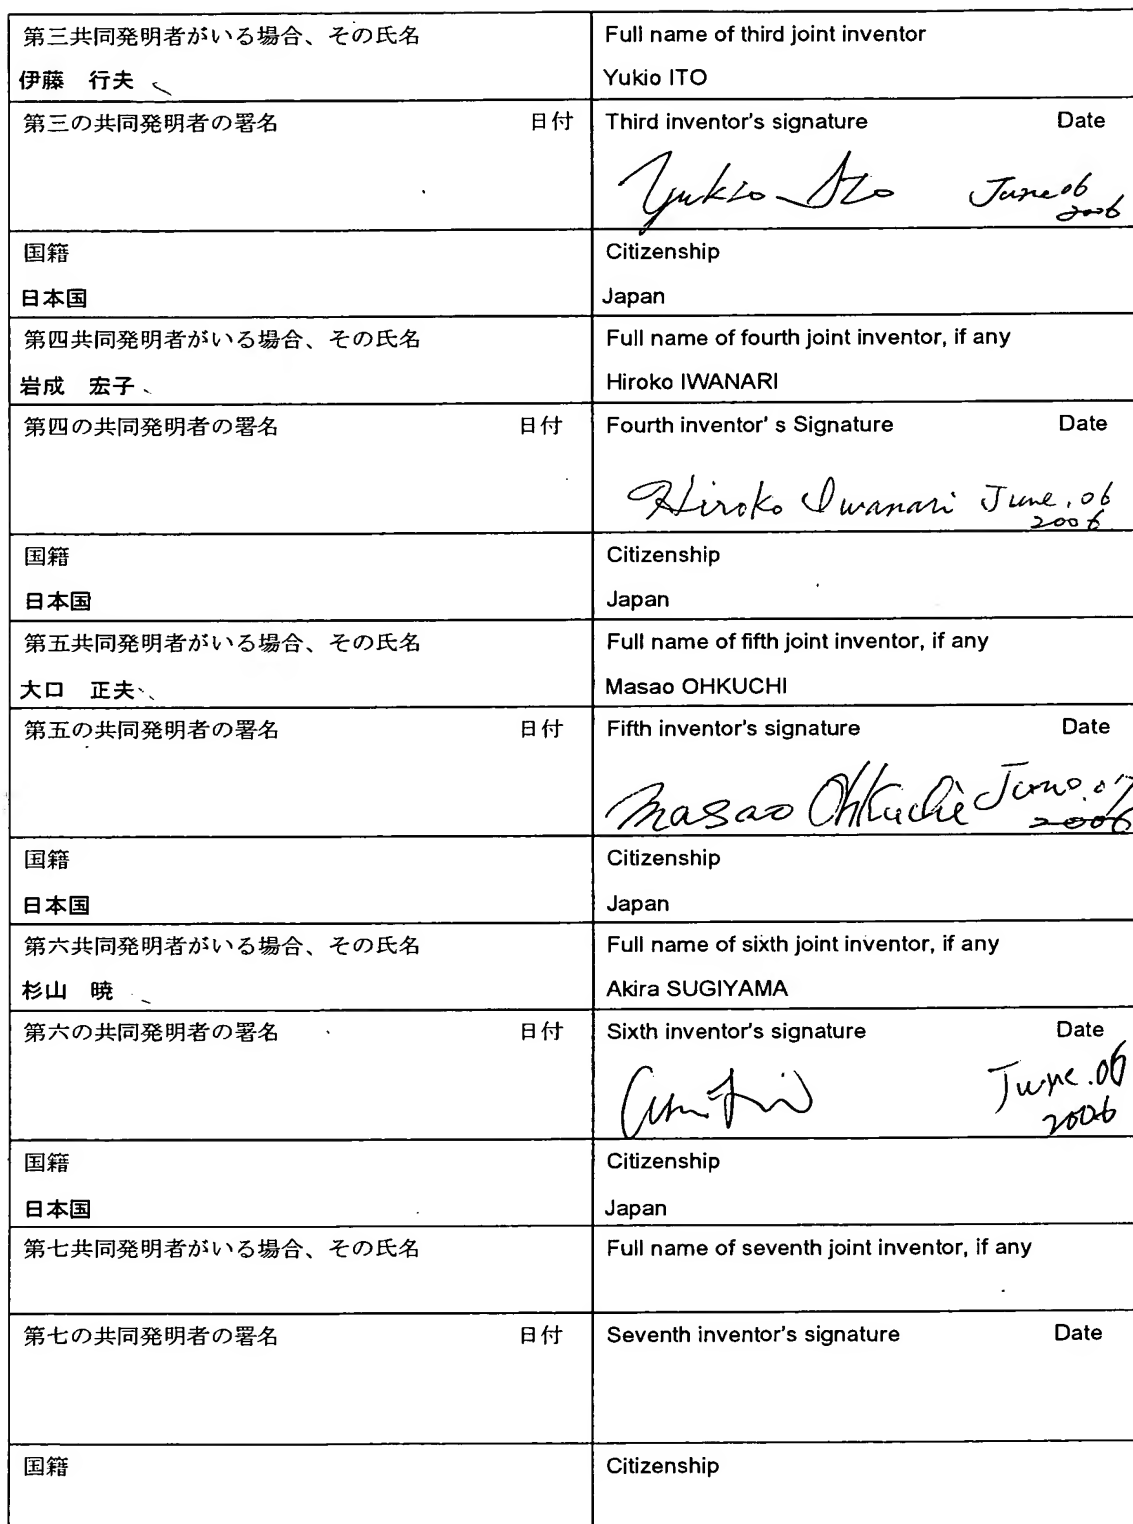 第三共同発明者がいる場合、その氏名
伊藤　行夫
Full name of third joint inventor
Yukio ITO
第三の共同発明者の署名 日付
Third inventor's signature Date
Yukio Ito June 06
2006
国籍
日本国
Citizenship
Japan
第四共同発明者がいる場合、その氏名
岩成　宏子
Full name of fourth joint inventor, if any
Hiroko IWANARI
第四の共同発明者の署名 日付
Fourth inventor' s Signature Date
Hiroko Iwanari June, 06
2006
国籍
日本国
Citizenship
Japan
第五共同発明者がいる場合、その氏名
大口　正夫
Full name of fifth joint inventor, if any
Masao OHKUCHI
第五の共同発明者の署名 日付
Fifth inventor's signature Date
Masao Ohkuchi June.07
2006
国籍
日本国
Citizenship
Japan
第六共同発明者がいる場合、その氏名
杉山　暁
Full name of sixth joint inventor, if any
Akira SUGIYAMA
第六の共同発明者の署名 日付
Sixth inventor's signature Date
June.06
2006
国籍
日本国
Citizenship
Japan
第七共同発明者がいる場合、その氏名
Full name of seventh joint inventor, if any
第七の共同発明者の署名 日付
Seventh inventor's signature Date
国籍
Citizenship